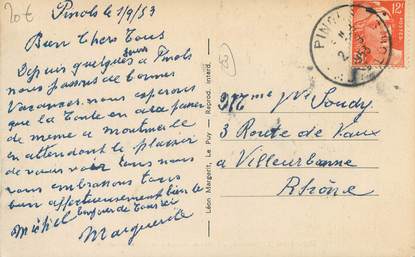 20€
Pinols le 1/9/53
Bien Chers Tous
Depuis quelques jours à Pinols
nous passons de bonnes
Vacances. nous espérons
que la Toute en
de même à
en attendant le plaisir
de vous voir tous nous
vous embrassons tous
bien affectueusement
Michel
Marguerite
Léon Margerit, Le Puy — Reprod. interd.
Mme Vve Soudy
3 Route de Vaux
à Villeurbanne
Rhône
PINOLS
12F
POSTES